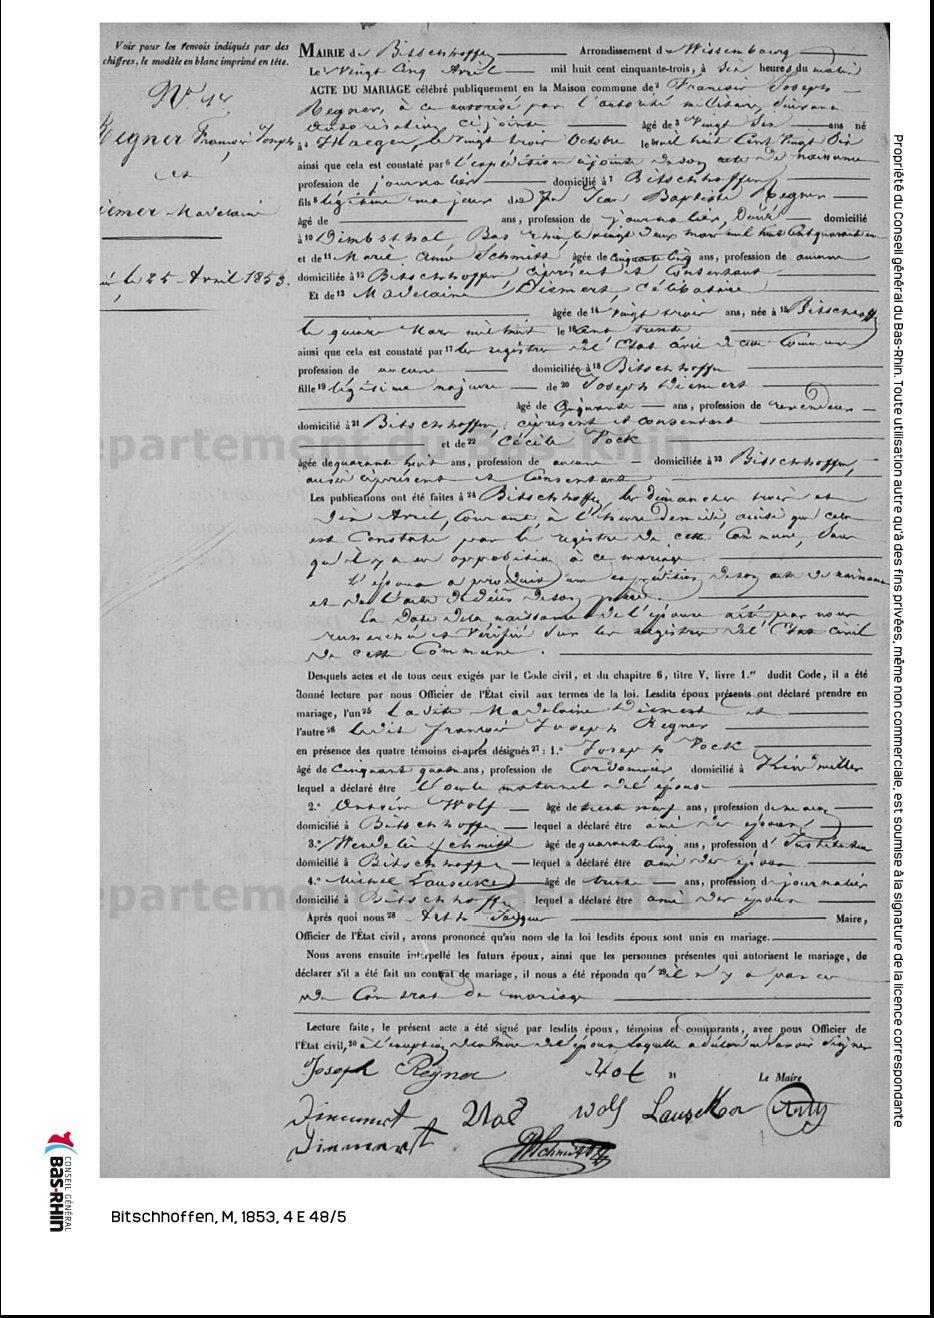 Voir pour les renvois indiqués par des
chiffres, le modèle en blanc imprimé en tête.
Regner François Joseph
et
Madelaine
le 25 Avril 1853.
MAIRIE de Bitschhoffen Arrondissement de Wissembourg
Le Vingt Cinq Avril mil huit cent cinquante-trois, à dix heures du matin
ACTE DU MARIAGE célébré publiquement en la Maison commune de 2 François Joseph
Regner, à ce autorisé par l'autorité militaire suivant
autorisation ci jointe âgé de 3 Vingt Six ans né
à 4 Haegen, le Vingt trois Octobre le mil huit Cent Vingt Six
ainsi que cela est constaté par 6 l'expédition ci jointe de son acte de naissance
profession de journalier domicilié à 7 Bitschhoffen
fils 8 légitime majeur de Jean Baptiste Regner
âgé de ans, profession de journalier, domicilié
à 10 Dimbsthal, Bas Rhin, le vingt deux mil huit cent quarante
et de 11 Marie Anne Schmitt âgée de Cinquante Cinq ans, profession de aucune
domiciliée à 12 Bitschhoffen ci présent et Consentant
Et de 13 Madelaine Diemert, Célibataire
âgée de 14 vingt trois ans, née à 15 Bitschhoffen
le quinze Mars mil huit le 16 Cent trente
ainsi que cela est constaté par 17 les registres de l'Etat civil de cette Commune
profession de aucune domiciliée à 18 Bitschhoffen
fille 19 légitime majeure de 20 Joseph Diemert
âgé de Cinquante ans, profession de revendeur
domicilié à 21 Bitschhoffen, ci présent et consentant
et de 22 Cécile Vock
âgée de quarante huit ans, profession de aucune domiciliée à 23 Bitschhoffen,
aussi ci présent et Consentant
Les publications ont été faites à 24 Bitschhoffen, les dimanches trois et
dix Avril, Courant, à l'heure de midi, ainsi que cela
est Constaté par le registre de cette Commune, Sans
qu'il y a eu opposition à ce mariage.
L'époux a produit une expédition de son acte de naissance
et de l'acte de décès de son père.
La Date de la naissance de l'épouse a été par nous
recherchée et Vérifié Sur les registres de l'Etat civil
de cette Commune.
Desquels actes et de tous ceux exigés par le Code civil, et du chapitre 6, titre V, livre 1.er dudit Code, il a été
donné lecture par nous Officier de l'État civil aux termes de la loi. Lesdits époux présents ont déclaré prendre en
mariage, l'un 25 La dite Madelaine Diemert et
l'autre 26 ledit François Joseph Regner
en présence des quatre témoins ci-après désignés 27 : 1.° Joseph Vock
âgé de Cinquante quatre ans, profession de Cordonnier domicilié à Kindwiller
lequel a déclaré être l'oncle maternel de l'épouse
2.° Antoine Wolf âgé de trente neuf ans, profession de maçon
domicilié à Bitschhoffen lequel a déclaré être ami des époux
3.° Wendelin Schmitt âgé de quarante Cinq ans, profession d'Instituteur
domicilié à Bitschhoffen lequel a déclaré être ami des époux
4.° Michel Lauscker âgé de trente ans, profession de journalier
domicilié à Bitschhoffen lequel a déclaré être ami des époux
Après quoi nous 28 Arth Jacques Maire,
Officier de l'État civil, avons prononcé qu'au nom de la loi lesdits époux sont unis en mariage.
Nous avons ensuite interpellé les futurs époux, ainsi que les personnes présentes qui autorisent le mariage, de
déclarer s'il a été fait un contrat de mariage, il nous a été répondu qu' 29 il n'y a pas eu
de Contrat de mariage
Lecture faite, le présent acte a été signé par lesdits époux, témoins et comparants, avec nous Officier de
l'État civil, 30 à l'exception de la mère de l'époux laquelle a déclaré ne savoir signer
Joseph Regner 31 Le Maire
Wolf Lauscker Arth
Schmitt
Département du Bas-Rhin
Département du Bas-Rhin
Propriété du Conseil général du Bas-Rhin. Toute utilisation autre qu'à des fins privées, même non commerciale, est soumise à la signature de la licence correspondante
CONSEIL GÉNÉRAL
Bas-Rhin
Bitschhoffen, M, 1853, 4 E 48/5